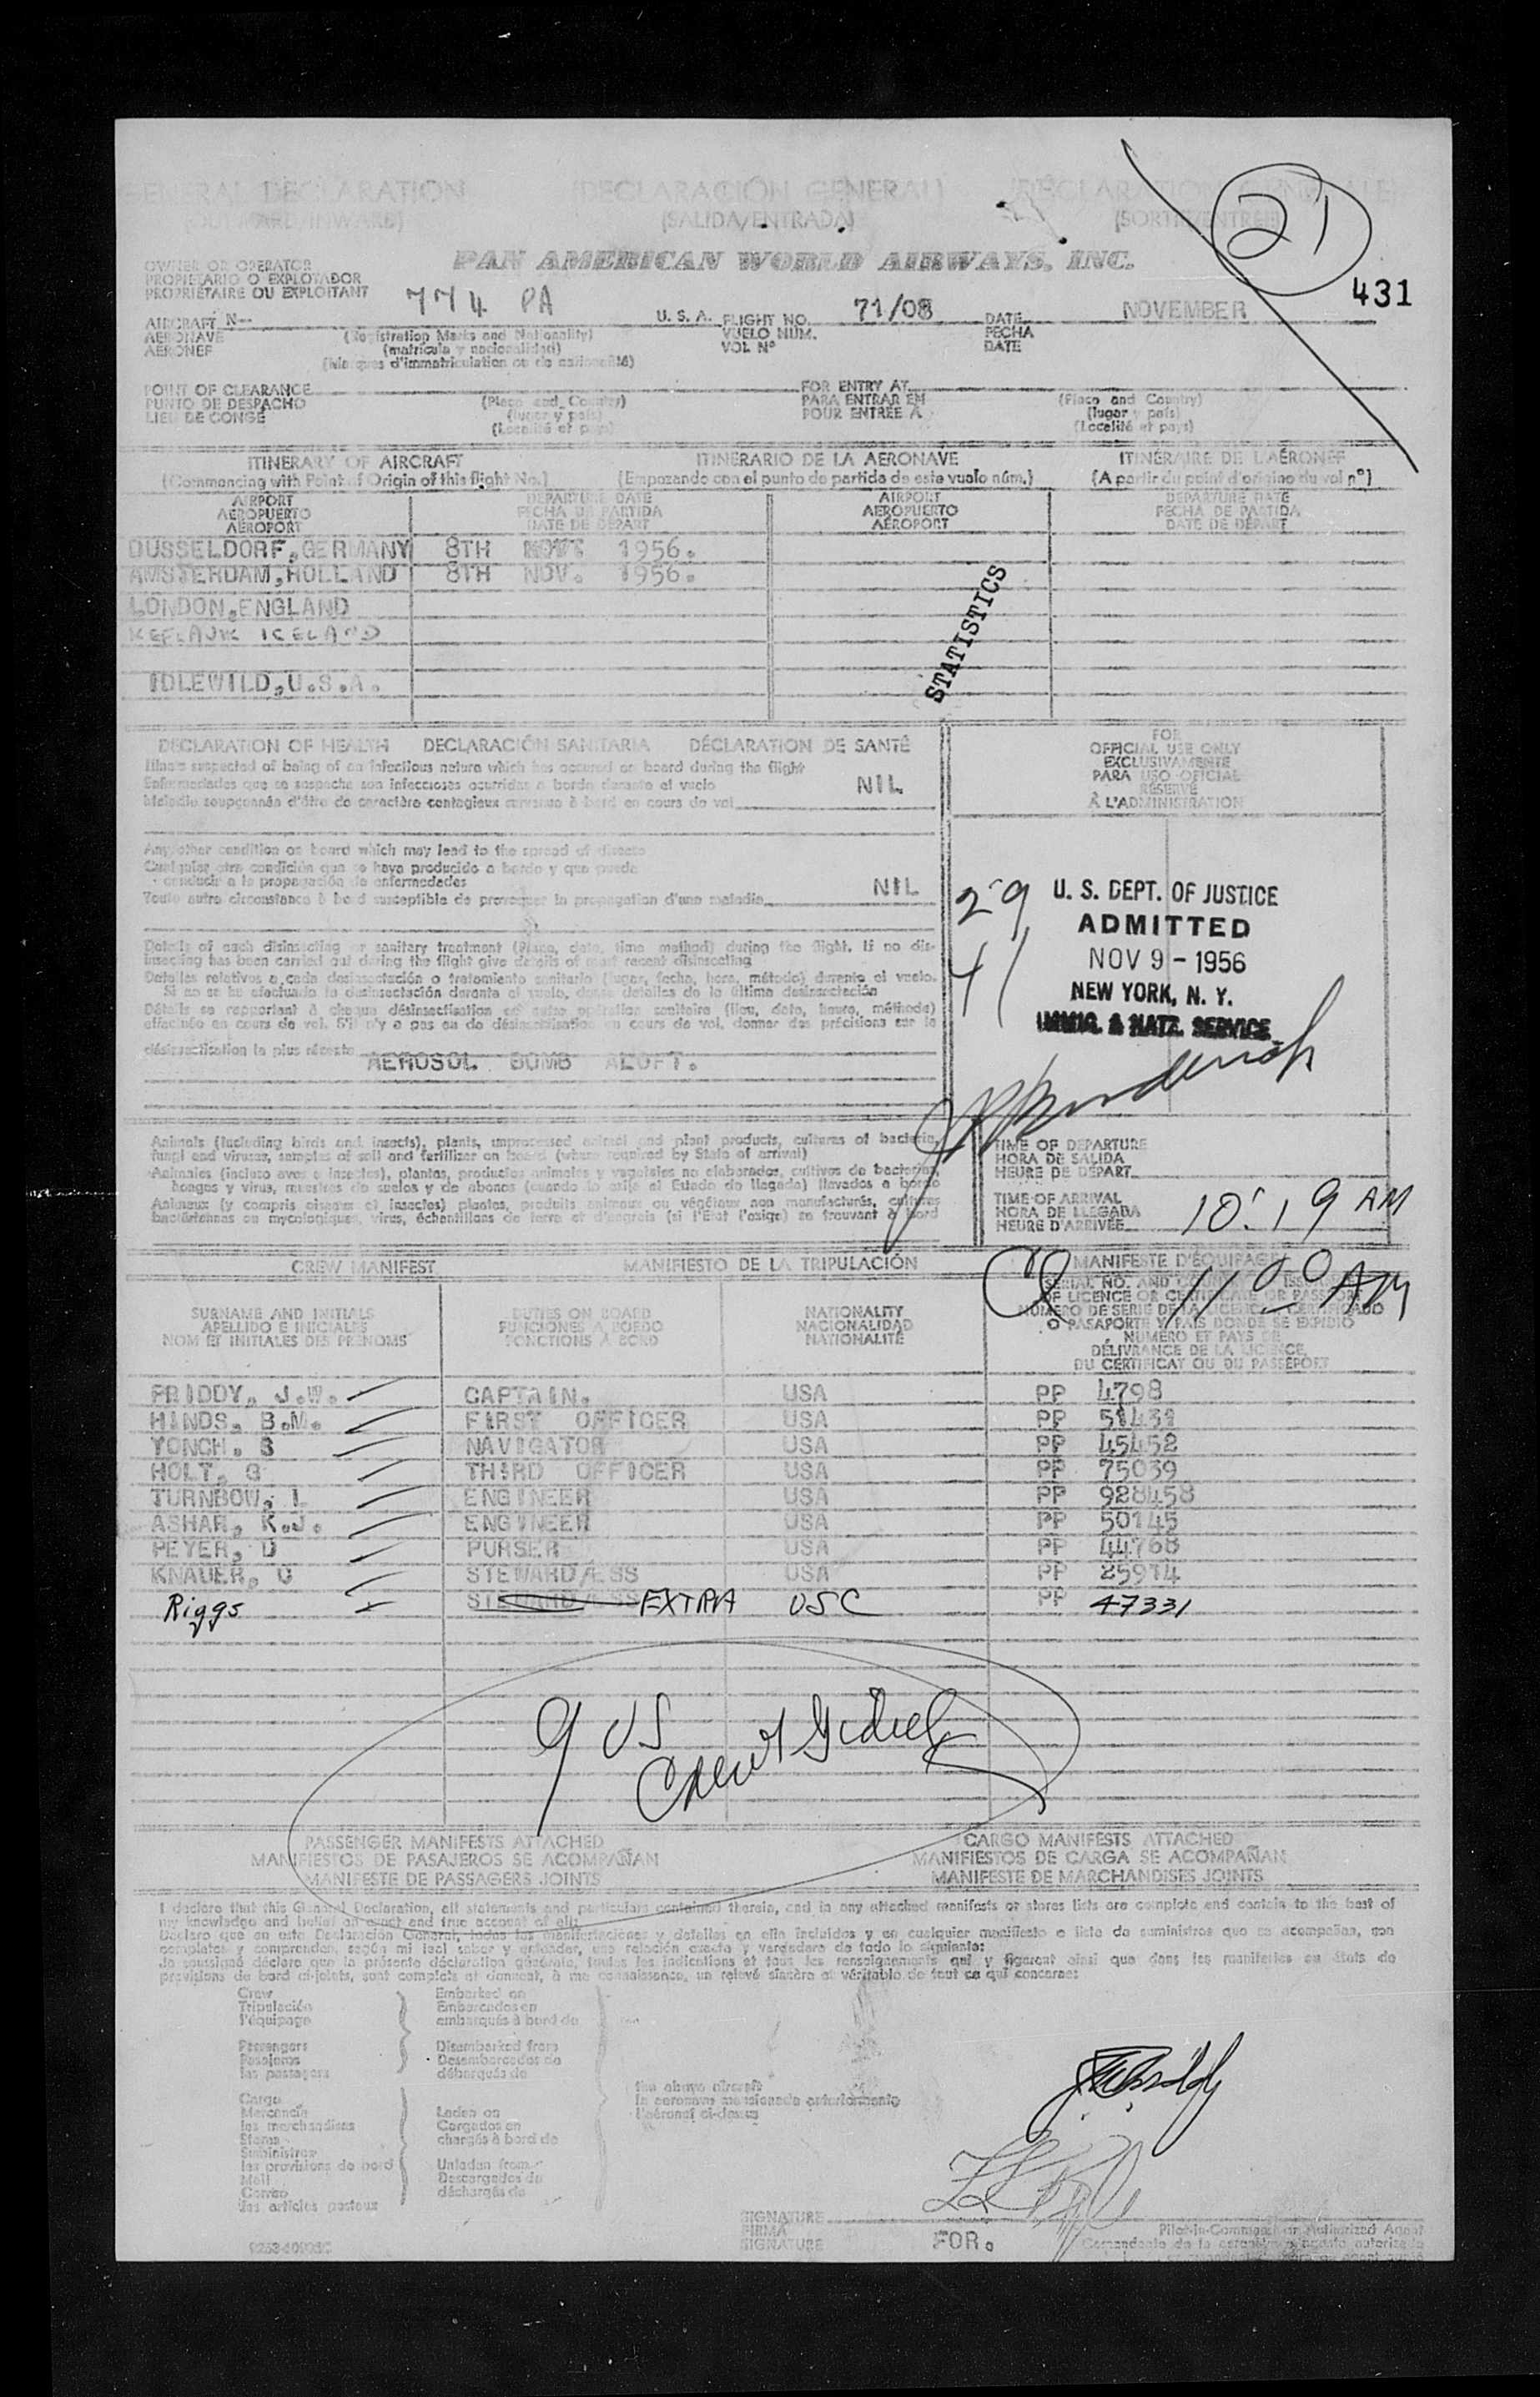 GENERAL DECLARATION (DECLARACIÓN GENERAL) (DÉCLARATION GÉNÉRALE)
(OUTWARD/INWARD) (SALIDA/ENTRADA) (SORTIE/ENTRÉE)
21
PAN AMERICAN WORLD AIRWAYS, INC.
431
OWNER OR OPERATOR
PROPIETARIO O EXPLOTADOR
PROPRIÉTAIRE OU EXPLOITANT
AIRCRAFT N-- 774 PA U. S. A. FLIGHT NO. 71/08 DATE NOVEMBER
AERONAVE (Registration Marks and Nationality) VUELO NUM. FECHA
AÉRONEF (matrícula y nacionalidad) VOL Nº DATE
(Marques d'immatriculation ou de nationalité)
POINT OF CLEARANCE (Place and Country) FOR ENTRY AT (Place and Country)
PUNTO DE DESPACHO (lugar y país) PARA ENTRAR EN (lugar y país)
LIEU DE CONGÉ (Localité et pays) POUR ENTRÉE A (Localité et pays)
ITINERARY OF AIRCRAFT ITINERARIO DE LA AERONAVE ITINÉRAIRE DE L'AÉRONEF
(Commencing with Point of Origin of this flight No.) (Empezando con el punto de partida de este vuelo núm.) (A partir du point d'origine du vol nº)
AIRPORT DEPARTURE DATE AIRPORT DEPARTURE DATE
AEROPUERTO FECHA DE PARTIDA AEROPUERTO FECHA DE PARTIDA
AÉROPORT DATE DE DÉPART AÉROPORT DATE DE DÉPART
DUSSELDORF, GERMANY 8TH NOV. 1956.
AMSTERDAM, HOLLAND 8TH NOV. 1956.
LONDON, ENGLAND
KEFLAVIK ICELAND
IDLEWILD, U.S.A.
STATISTICS
DECLARATION OF HEALTH DECLARACIÓN SANITARIA DÉCLARATION DE SANTÉ
Illness suspected of being of an infectious nature which has occured on board during the flight
Enfermedades que se sospecha son infecciosas ocurridas a bordo durante el vuelo NIL
Maladie soupçonnée d'être de caractère contagieux survenue à bord en cours de vol
Any other condition on board which may lead to the spread of disease
Cualquier otra condición que se haya producido a bordo y que pueda
conducir a la propagación de enfermedades
Toute autre circonstance à bord susceptible de provoquer la propagation d'une maladie NIL
Details of each disinsecting or sanitary treatment (Place, date, time method) during the flight. If no dis-
insecting has been carried out during the flight give details of most recent disinsecting
Detalles relativos a cada desinsectación o tratamiento sanitario (lugar, fecha, hora, método) durante el vuelo.
Si no se ha efectuado la desinsectación durante el vuelo, dense detalles de la última desinsectación
Détails se rapportant à chaque désinsectisation ou autre opération sanitaire (lieu, date, heure, méthode)
effectuée en cours de vol. S'il n'y a pas eu de désinsectisation en cours de vol, donner des précisions sur la
désinsectisation la plus récente AEROSOL BOMB ALOFT.
FOR
OFFICIAL USE ONLY
EXCLUSIVAMENTE
PARA USO OFICIAL
RÉSERVÉ
À L'ADMINISTRATION
29
41
U. S. DEPT. OF JUSTICE
ADMITTED
NOV 9 - 1956
NEW YORK, N. Y.
IMMIG. & NATZ. SERVICE
Animals (including birds and insects), plants, unprocessed animal and plant products, cultures of bacteria,
fungi and viruses, samples of soil and fertilizer on board (where required by State of arrival)
Animales (incluso aves e insectos), plantas, productos animales y vegetales no elaborados, cultivos de bacterias,
hongos y virus, muestras de suelos y de abonos (cuando lo exija el Estado de llegada) llevados a bordo
Animaux (y compris oiseaux et insectes) plantes, produits animaux ou végétaux non manufacturés, cultures
bactériennes ou mycologiques, virus, échantillons de terre et d'engrais (si l'État l'exige) se trouvant à bord
TIME OF DEPARTURE
HORA DE SALIDA
HEURE DE DÉPART
TIME OF ARRIVAL
HORA DE LLEGADA
HEURE D'ARRIVÉE 10:19 AM
11 00 AM
CREW MANIFEST MANIFIESTO DE LA TRIPULACIÓN MANIFESTE D'ÉQUIPAGE
SURNAME AND INITIALS DUTIES ON BOARD NATIONALITY SERIAL NO. AND COUNTRY OF ISSUE
APELLIDO E INICIALES FUNCIONES A BORDO NACIONALIDAD OF LICENCE OR CERTIFICATE OR PASSPORT
NOM ET INITIALES DES PRENOMS FONCTIONS À BORD NATIONALITÉ NÚMERO DE SERIE DE LA LICENCIA, CERTIFICADO
O PASAPORTE Y PAIS DONDE SE EXPIDIÓ
NUMÉRO ET PAYS DE
DÉLIVRANCE DE LA LICENCE,
DU CERTIFICAT OU DU PASSEPORT
PRIDDY, J.W. CAPTAIN. USA PP 4798
HINDS, B.M. FIRST OFFICER USA PP 51431
YONCH, S NAVIGATOR USA PP 45452
HOLT, G THIRD OFFICER USA PP 75039
TURNBOW, L ENGINEER USA PP 928458
ASHAR, K.J. ENGINEER USA PP 50145
PEYER, D PURSER USA PP 44768
KNAUER, G STEWARD/ESS USA PP 25914
Riggs STEWARD/ESS EXTRA USC PP 47331
9 US
PASSENGER MANIFESTS ATTACHED CARGO MANIFESTS ATTACHED
MANIFIESTOS DE PASAJEROS SE ACOMPAÑAN MANIFIESTOS DE CARGA SE ACOMPAÑAN
MANIFESTE DE PASSAGERS JOINTS MANIFESTE DE MARCHANDISES JOINTS
I declare that this General Declaration, all statements and particulars contained therein, and in any attached manifests or stores lists are complete and contain to the best of
my knowledge and belief an exact and true account of all:
Declaro que en esta Declaración General, todas las manifestaciones y detalles en ella incluidos y en cualquier manifiesto o lista de suministros que se acompañan, son
completos y comprenden, según mi leal saber y entender, una relación exacta y verdadera de todo lo siguiente:
Je soussigné déclare que la présente déclaration générale, toutes les indications et tous les renseignements qui y figurent ainsi que dans les manifestes ou états de
provisions de bord ci-joints, sont complets et donnent, à ma connaissance, un relevé sincère et véritable de tout ce qui concerne:
Crew Embarked on
Tripulación Embarcados en
l'équipage embarqués à bord de
Passengers Disembarked from
Pasajeros Desembarcados de
les passagers débarqués de
the above aircraft
la aeronave mencionada anteriormente
l'aéronef ci-dessus
Cargo
Mercancía Laden on
les merchandises Cargados en
Stores chargés à bord de
Suministros
les provisions de bord Unladen from
Mail Descargados de
Correo déchargés de
les articles postaux
SIGNATURE
FIRMA
SIGNATURE FOR.
Pilot-in-Command or Authorized Agent
Comandante de la aeronave o agente autorizado